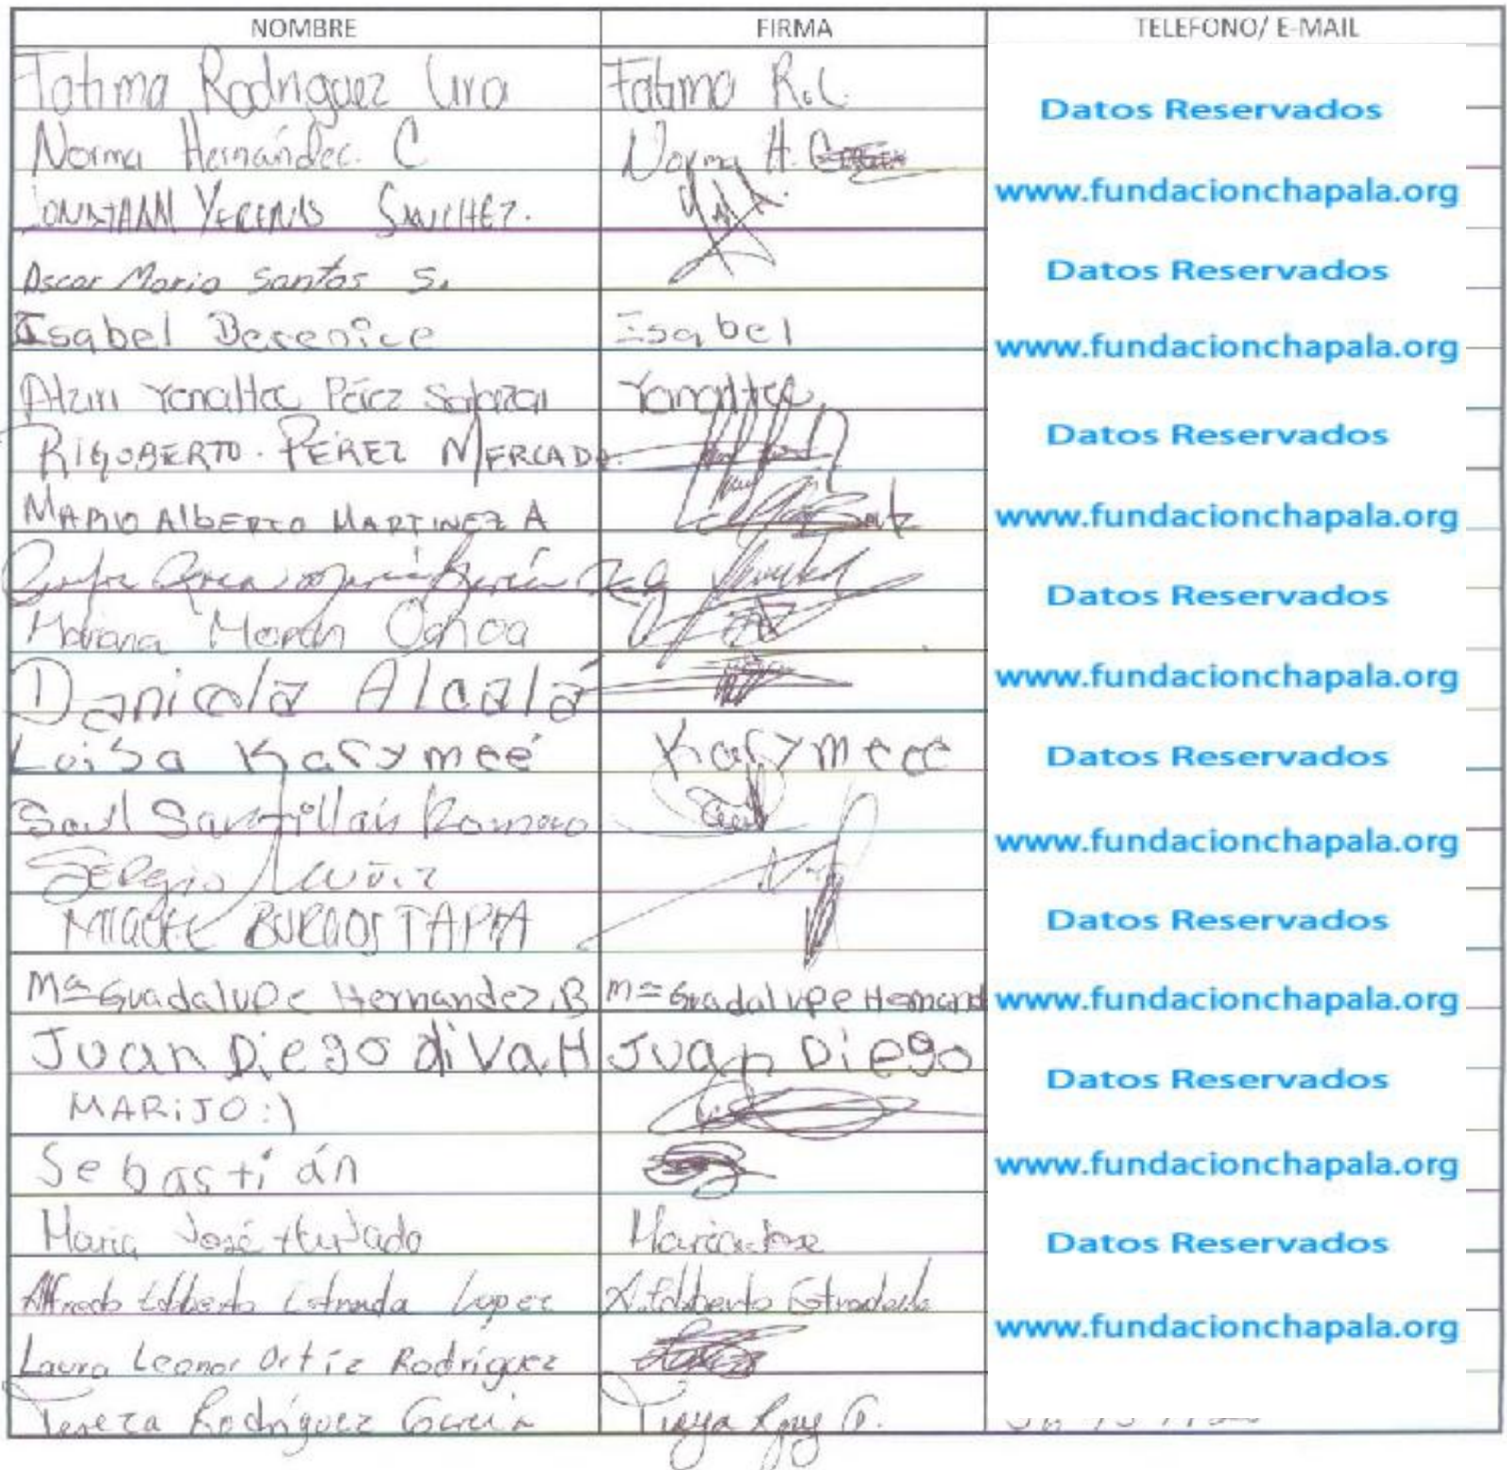 NOMBRE FIRMA TELEFONO/ E-MAIL
Fatima Rodriguez Lira Fatima R.L.
Datos Reservados
Norma Hernández C Norma H.
www.fundacionchapala.org
SANCHEZ.
Oscar Mario Santos S.
Datos Reservados
Isabel Berenice Isabel
www.fundacionchapala.org
Yanaltee Pérez Salazar Yanaltee
Datos Reservados
RIGOBERTO. PÉREZ MERCADO.
MARIO AlbERTO MARTINEZ A
www.fundacionchapala.org
Datos Reservados
Mariana Morán Ochoa
Daniela Alcalá
www.fundacionchapala.org
Loisa Karymeé Karymeé
Datos Reservados
Saul Santillán Romero
www.fundacionchapala.org
Sergio Muñiz
MIGUEL BURGOS TAPIA
Datos Reservados
Mª Guadalupe Hernandez.B Mª Guadalupe Hernand
www.fundacionchapala.org
Juan Diego di Va H Juan Diego
Datos Reservados
MARiJO:)
Sebastián
www.fundacionchapala.org
Maria José Hurtado Maria Jose
Datos Reservados
Alfredo Edilberto Estrada Lopez
www.fundacionchapala.org
Laura Leonor Ortíz Rodríguez
Tereza Rodríguez García